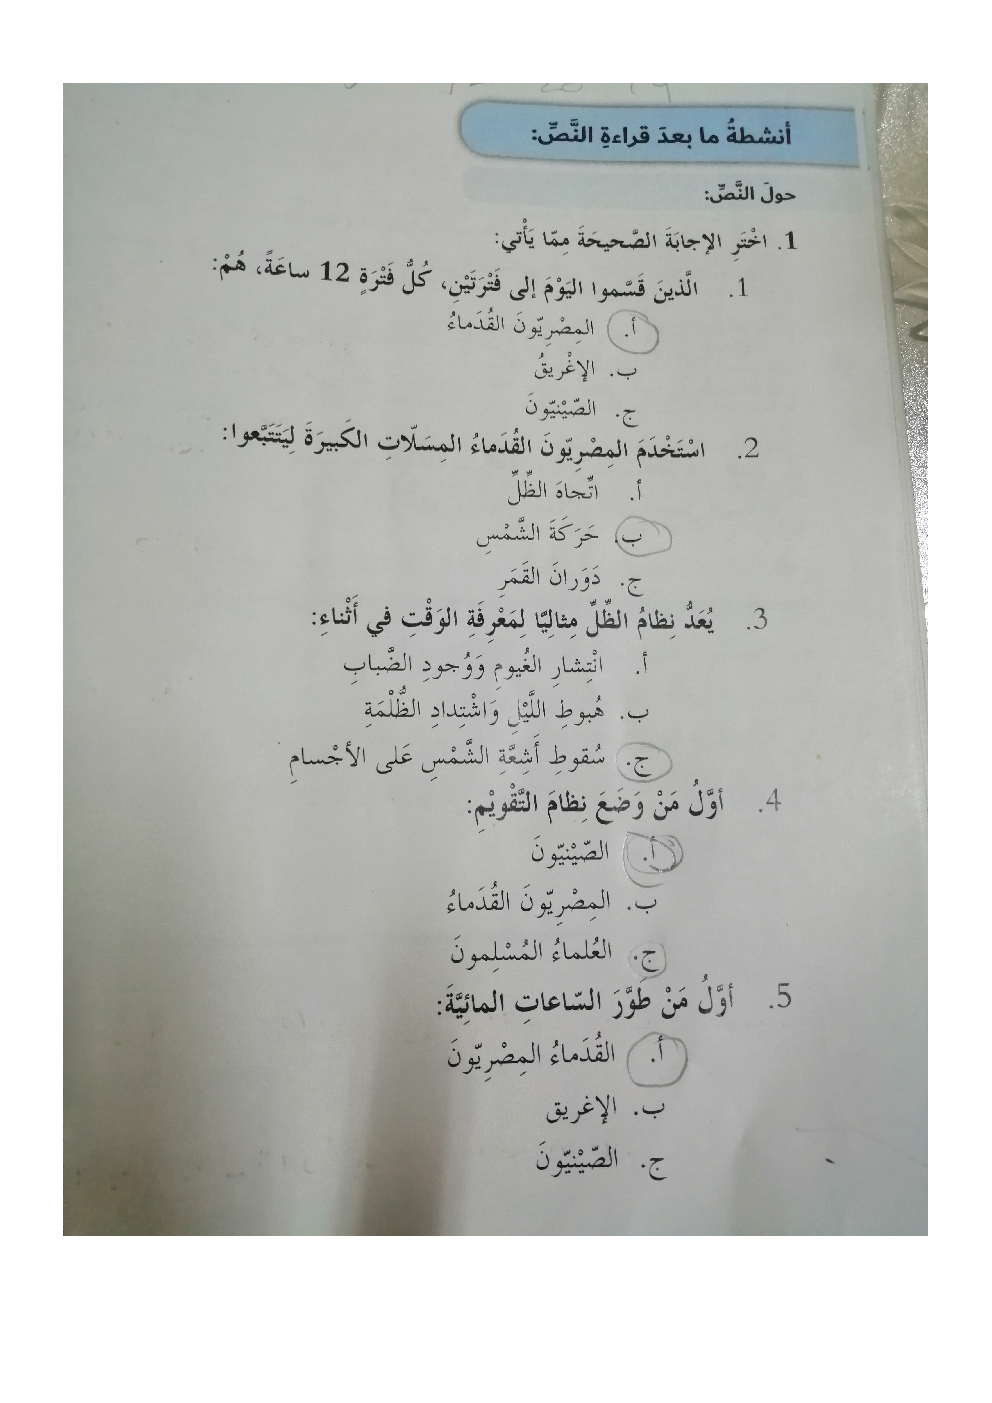 أنشطةُ ما بعدَ قراءةِ النَّصِّ:
حولَ النَّصِّ:
1. اخْتَرِ الإجابَةَ الصَّحيحَةَ مِمّا يَأْتي:
1. الَّذينَ قَسَّموا اليَوْمَ إلى فَتْرَتَيْنِ، كُلُّ فَتْرَةٍ 12 ساعَةً، هُمْ:
أ. المِصْرِيّونَ القُدَماءُ
ب. الإغْريقُ
ج. الصّيْنيّونَ
2. اسْتَخْدَمَ المِصْرِيّونَ القُدَماءُ المِسَلّاتِ الكَبيرَةَ لِيَتَتَبَّعوا:
أ. اتِّجاهَ الظِّلِّ
ب. حَرَكَةَ الشَّمْسِ
ج. دَوَرانَ القَمَرِ
3. يُعَدُّ نِظامُ الظِّلِّ مِثالِيًّا لِمَعْرِفَةِ الوَقْتِ في أَثْناءِ:
أ. انْتِشارِ الغُيومِ وَوُجودِ الضَّبابِ
ب. هُبوطِ اللَّيْلِ وَاشْتِدادِ الظُّلْمَةِ
ج. سُقوطِ أَشِعَّةِ الشَّمْسِ عَلى الأجْسامِ
4. أوَّلُ مَنْ وَضَعَ نِظامَ التَّقْويْمِ:
أ. الصّيْنيّونَ
ب. المِصْرِيّونَ القُدَماءُ
ج. العُلماءُ المُسْلِمونَ
5. أوَّلُ مَنْ طَوَّرَ السّاعاتِ المائِيَّةَ:
أ. القُدَماءُ المِصْرِيّونَ
ب. الإغريق
ج. الصّيْنيّونَ